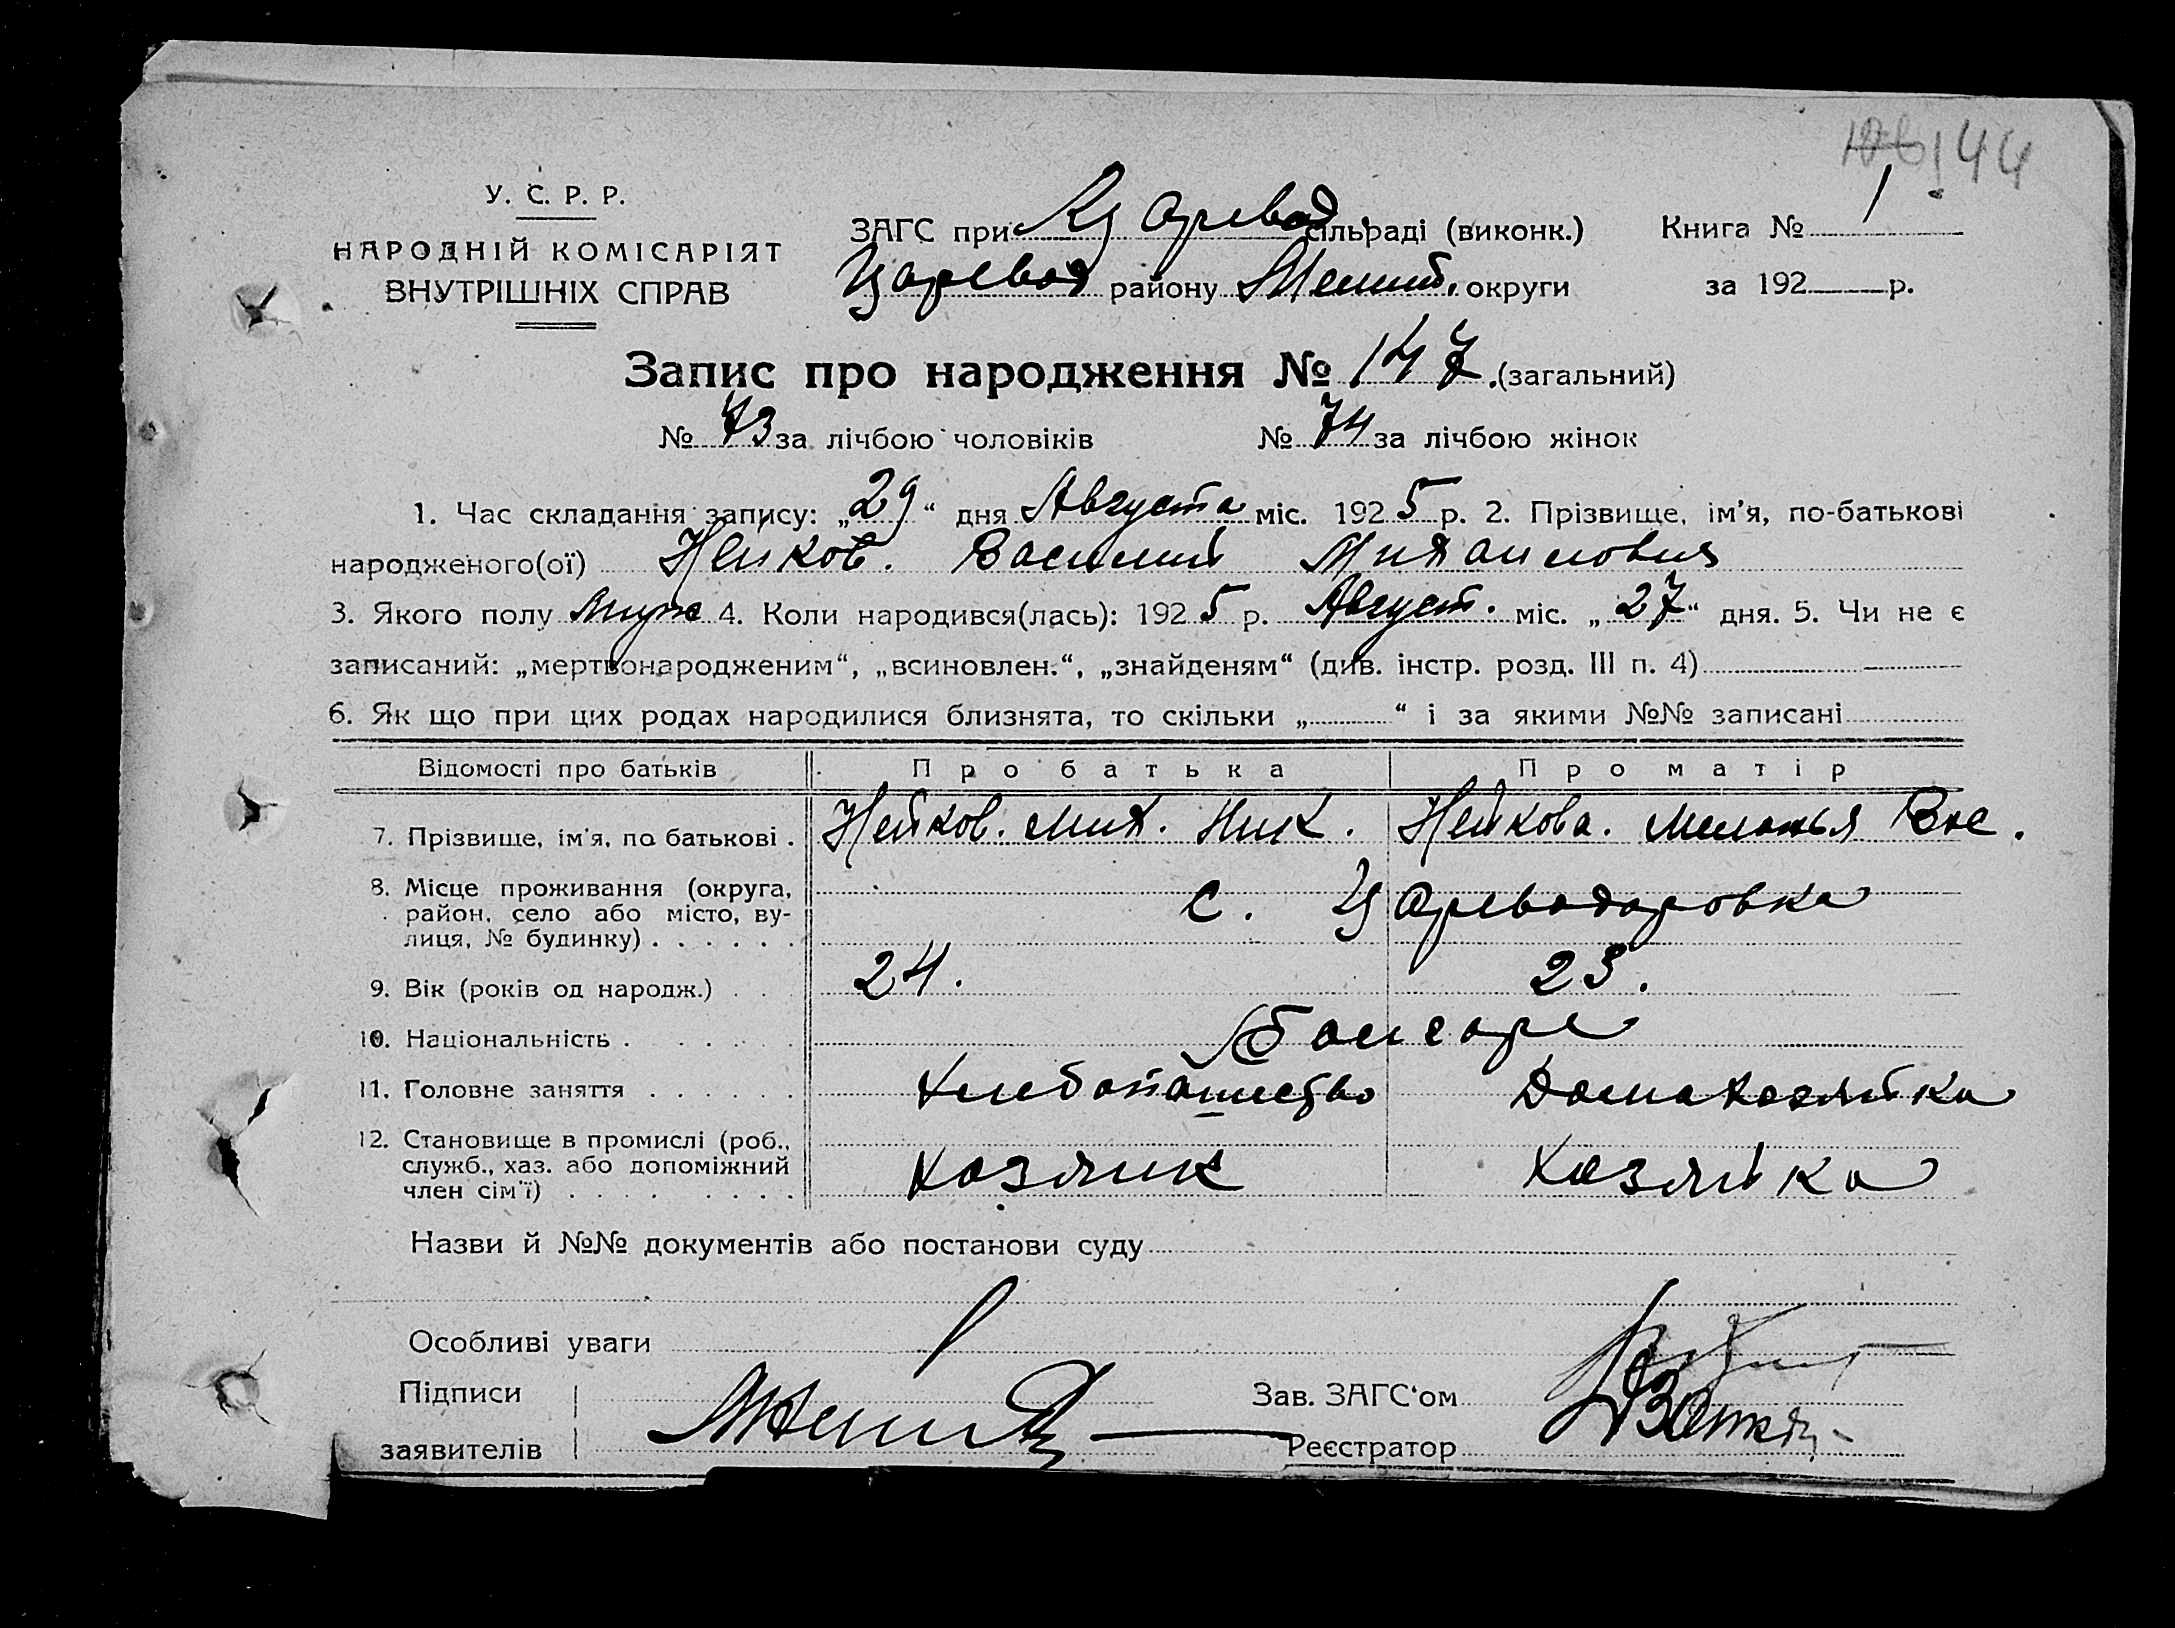 144
У. С. Р. Р.
НАРОДНІЙ КОМІСАРІЯТ
ВНУТРІШНІХ СПРАВ
ЗАГС при Царевод сільраді (виконк.) Книга № 1
Царевод району Мелит. округи за 192 р.
Запис про народження № 147 (загальний)
№ 73 за лічбою чоловіків № 74 за лічбою жінок
1. Час складання запису: „29“ дня Августа міс. 1925 р. 2. Прізвище, ім'я, по-батькові
народженого(ої) Нейков. Василий Михаилович
3. Якого полу муж 4. Коли народився(лась): 1925 р. Август. міс. „27“ дня. 5. Чи не є
записаний: „мертвонародженим“, „всиновлен.“, „знайденям“ (див. інстр. розд. III п. 4)
6. Як що при цих родах народилися близнята, то скільки „ “ і за якими №№ записані
Відомості про батьків Про батька Про матір
7. Прізвище, ім'я, по батькові . Нейков. Мих. Ник. Нейкова. Меланья Вас.
8. Місце проживання (округа,
район, село або місто, ву-
лиця, № будинку) . . . . . . с. Цареводаровка
9. Вік (років од народж.) . . . 24. 23.
10. Національність . . . . . . . Болгаре
11. Головне заняття . . . . . . Хлебопашество Домахозяйка
12. Становище в промислі (роб.,
служб., хаз. або допоміжний
член сім'ї) . . . . . . . . . Хозяик Хозяйка
Назви й №№ документів або постанови суду
Особливі уваги
Підписи
заявителів
Зав. ЗАГС‘ом
Реєстратор